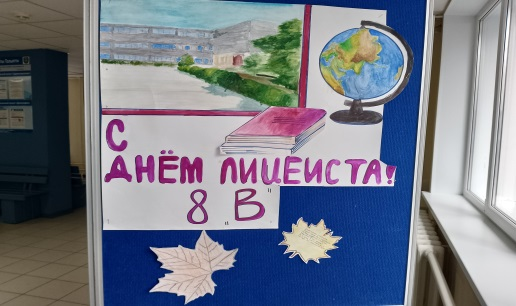 С
ДНЁМ ЛИЦЕИСТА!
8 "В"